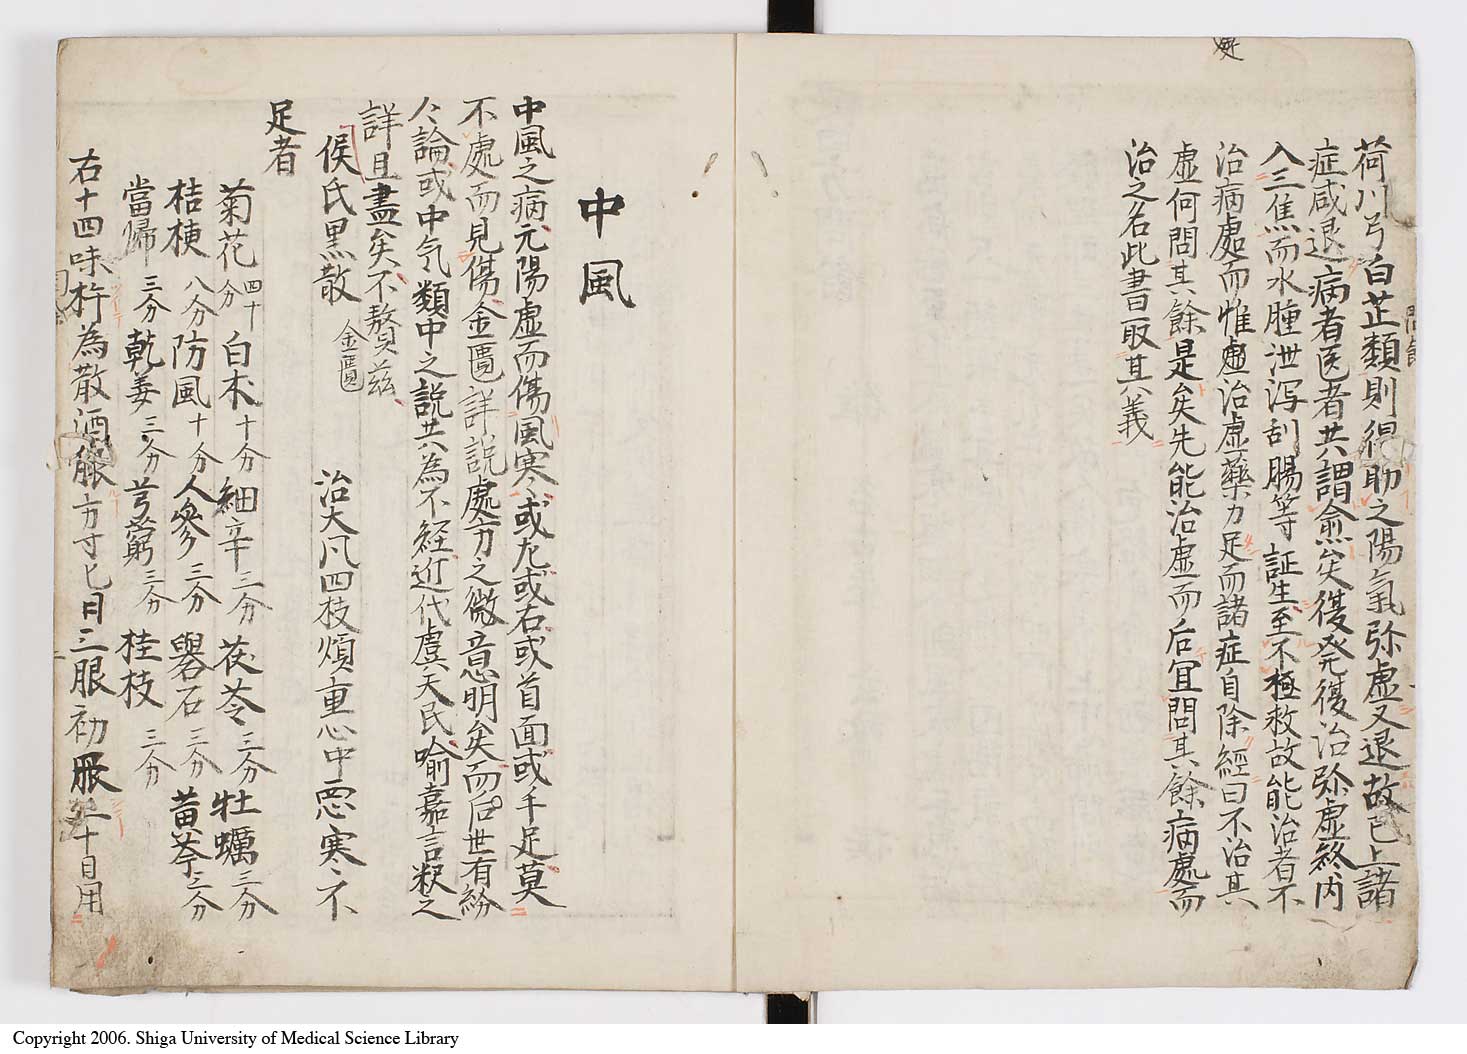 荷川芎白芷類則得助之陽氣弥虛又退故已上諸
症咸退病者医者共謂愈矣復発復治弥虛終内
入三焦而水腫泄泻刮腸等証生至不極救故能治者不
治病處而惟虛治虛藥力足而諸症自除經曰不治其
虛何問其餘是矣先能治虛而后冝問其餘病處而
治之名此書取其義
中風
中風之病元陽虛而傷風寒々或尤或右或首面或手足莫
不處而見傷金匱詳說處方之微意明矣而后世有紛
々論或中気類中之説共為不經近代虞天民喻嘉言釈之
詳且盡矣不贅茲
侯氏黒散 金匱 治大凡四枝煩重心中悪寒々不
足者
菊花 四十分 白朮 十分 細辛 三分 茯苓 三分 牡蠣 三分
桔梗 八分 防風 十分 人參 三分 礬石 三分 黄芩 三分
當帰 三分 乾姜 三分 芎藭 三分 桂枝 三分
右十四味杵為散酒服方寸匕日三服初服二十日用
Copyright 2006. Shiga University of Medical Science Library